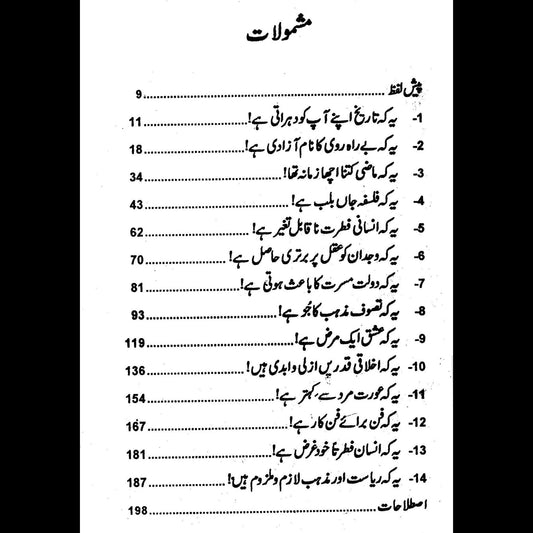 مشمولات
پیش لفظ ........ 9
1- یہ کہ تاریخ اپنے آپ کو دہراتی ہے! ........ 11
2- یہ کہ بے راہ روی کا نام آزادی ہے! ........ 18
3- یہ کہ ماضی کتنا اچھا زمانہ تھا! ........ 34
4- یہ کہ فلسفہ جاں بلب ہے! ........ 43
5- یہ کہ انسانی فطرت ناقابل تغیر ہے! ........ 62
6- یہ کہ وجدان کو عقل پر برتری حاصل ہے! ........ 70
7- یہ کہ دولت مسرت کا باعث ہوتی ہے! ........ 81
8- یہ کہ تصوف مذہب کا جُو ہے! ........ 93
9- یہ کہ عشق ایک مرض ہے! ........ 119
10- یہ کہ اخلاقی قدریں ازلی و ابدی ہیں! ........ 136
11- یہ کہ عورت مرد سے کہتر ہے! ........ 154
12- یہ کہ فن برائے فن کار ہے! ........ 167
13- یہ کہ انسان فطرتاً خود غرض ہے! ........ 181
14- یہ کہ ریاست اور مذہب لازم و ملزوم ہیں! ........ 187
اصطلاحات ........ 198